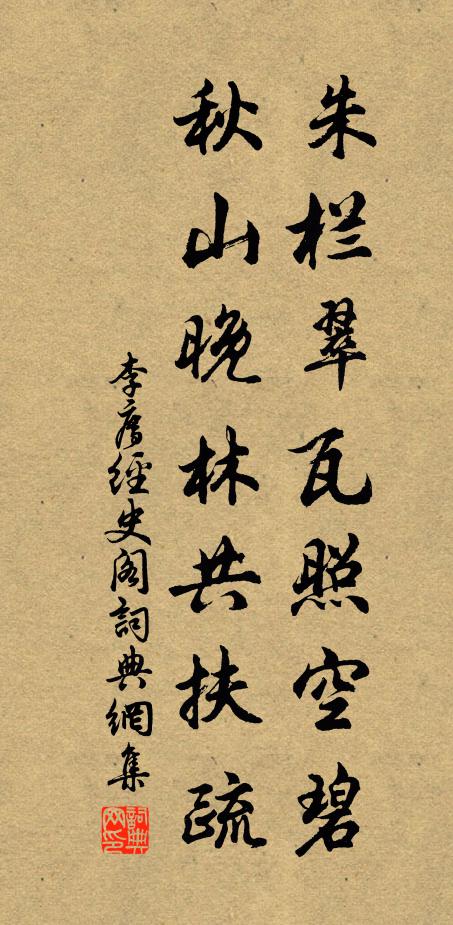 朱栏翠瓦照空碧
秋山晚林共扶疏
李膺經史阁詞典網集
詞典网印